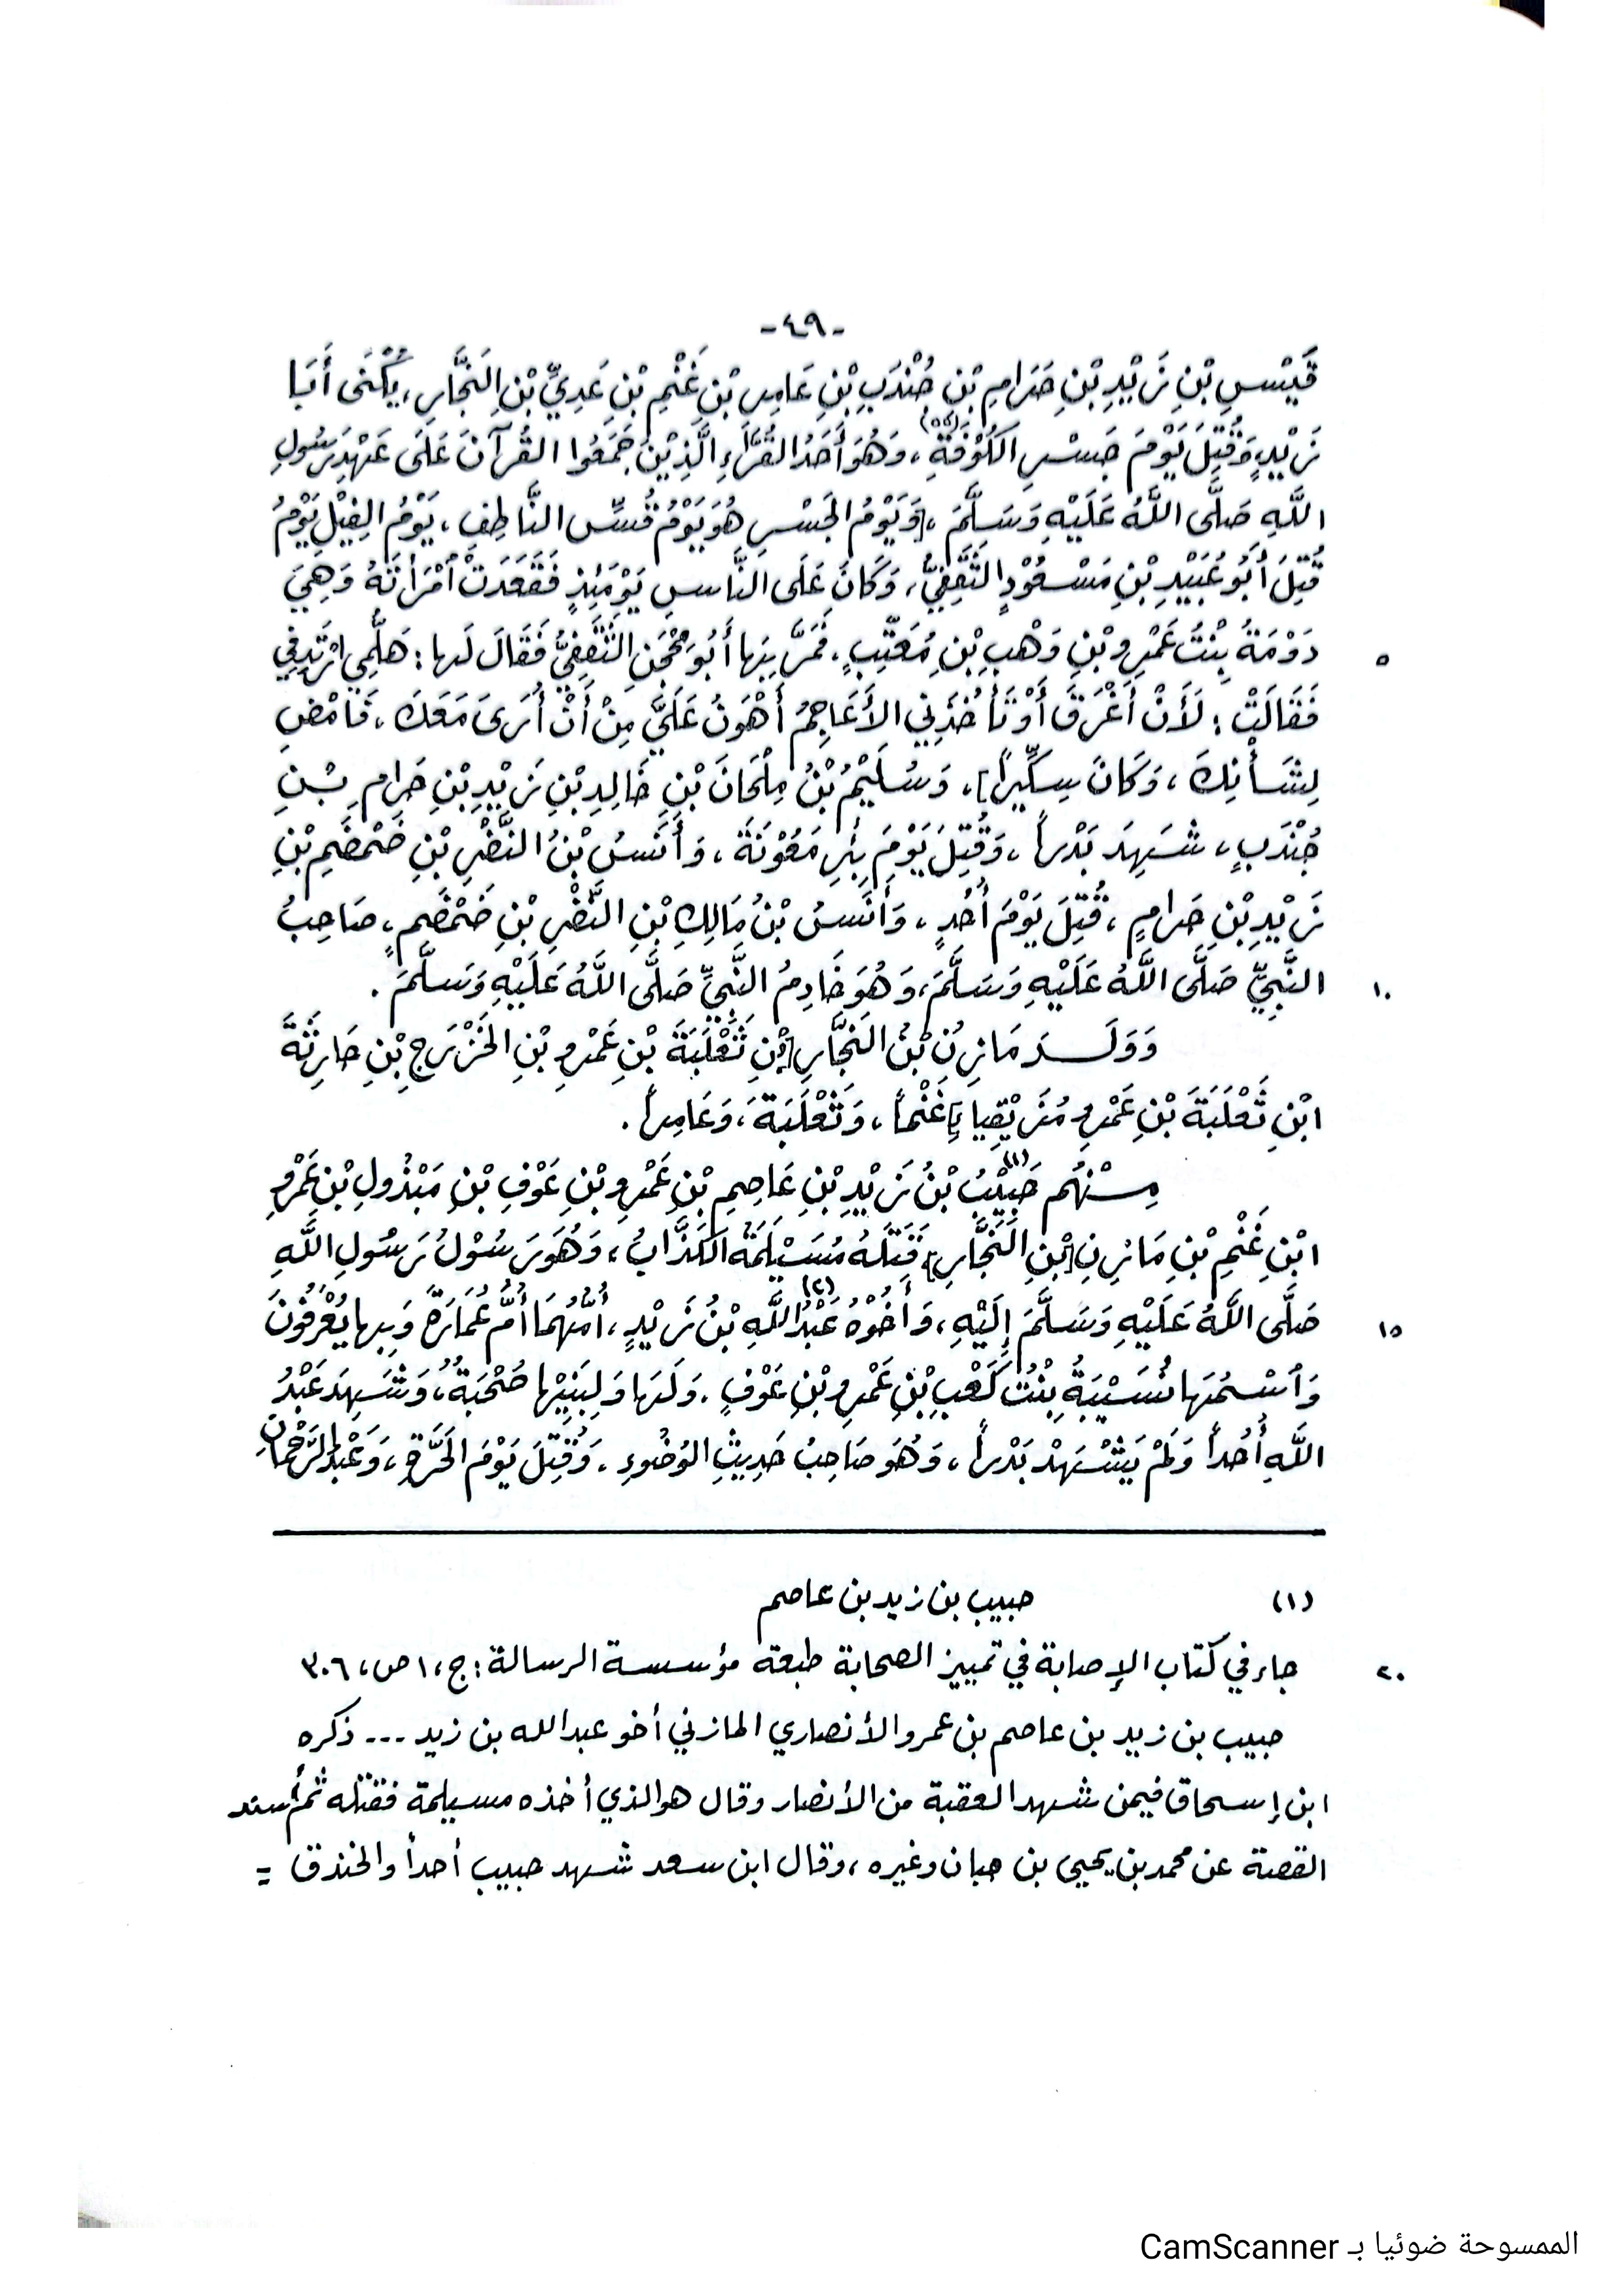 -٤٩-
قَيْسِ بْنِ زَيْدِ بْنِ حَرَامِ بْنِ جُنْدَبِ بْنِ عَامِرِ بْنِ غَنْمِ بْنِ عَدِيِّ بْنِ النَّجَّارِ، يُكْنَى أَبَا
زَيْدٍ وَقُتِلَ يَوْمَ جَسْرِ الكُوْفَةِ، وَهُوَ أَحَدُ القُرَّاءِ الَّذِيْنَ جَمَعُوا القُرْآنَ عَلَى عَهْدِ رَسُولِ
اللَّهِ صَلَّى اللَّهُ عَلَيْهِ وَسَلَّمَ، [وَيَوْمُ الجَسْرِ هُوَ يَوْمُ قُسِّ النَّاطِفِ، يَوْمُ الفِيْلِ يَوْمُ
قُتِلَ أَبُو عُبَيْدِ بْنِ مَسْعُوْدٍ الثَّقَفِيُّ، وَكَانَ عَلَى النَّاسِ يَوْمَئِذٍ فَقَعَدَتْ امْرَأَتَهُ وَهِيَ
دَوْمَةُ بِنْتُ عَمْرِو بْنِ وَهْبِ بْنِ مُعَتِّبٍ. فَمَرَّ بِهَا أَبُو مِحْجَنِ الثَّقَفِيُّ فَقَالَ لَها: هَلُمِّي ارْتَدِفِي
٥
فَقَالَتْ: لَأَنْ أَغْرَقَ أَوْ تَأْخُذَنِي الأَعَاجِمُ أَهْوَنُ عَلَيَّ مِنْ أَنْ أُرَى مَعَكَ، فَامْضِ
لِشَأْنِكَ، وَكَانَ سِكِّيراً]، وَسُلَيْمُ بْنُ مِلْحَانَ بْنِ خَالِدِ بْنِ زَيْدِ بْنِ حَرَامِ بْنِ
جُنْدَبٍ، شَهِدَ بَدْراً، وَقُتِلَ يَوْمَ بِئْرِ مَعُوْنَةَ، وَأَنَسُ بْنُ النَّضْرِ بْنِ ضَمْضَمِ بْنِ
زَيْدِ بْنِ حَرامٍ، قُتِلَ يَوْمَ أُحُدٍ، وَأَنَسُ بْنُ مَالِكِ بْنِ النَّضْرِ بْنِ ضَمْضَمٍ، صَاحِبُ
النَّبِيِّ صَلَّى اللَّهُ عَلَيْهِ وَسَلَّمَ، وَهُوَ خَادِمُ النَّبِيِّ صَلَّى اللَّهُ عَلَيْهِ وَسَلَّمَ.
١٠
وَوَلَـــدَ مَازِنُ بْنُ النَّجَّارِ [بْنِ ثَعْلَبَةَ بْنِ عَمْرِو بْنِ الخَزْرَجِ بْنِ حَارِثَةَ
ابْنِ ثَعْلَبَةَ بْنِ عَمْرِو مُزَيْقِيا] غَنْماً، وَثَعْلَبَةَ، وَعَامِراً.
مِـنْهُم حَبِيْبُ (١) بْنُ زَيْدِ بْنِ عَاصِمِ بْنِ عَمْرِو بْنِ عَوْفِ بْنِ مَبْذُولِ بْنِ عَمْرِو
ابْنِ غَنْمِ بْنِ مَازِنِ [بْنِ النَّجَّارِ] قَتَلَهُ مُسَيْلَمَةُ الكَذَّابُ، وَهُوَ رَسُوْلُ رَسُولِ اللَّهِ
صَلَّى اللَّهُ عَلَيْهِ وَسَلَّمَ إِلَيْهِ، وَأَخُوْهُ عَبْدُ اللَّهِ (٢) بْنُ زَيْدٍ، أُمُّهُمَا أُمُّ عُمَارَةَ وَبِها يُعْرَفُونَ
١٥
وَاسْمُهَا نُسَيْبَةُ بِنْتُ كَعْبِ بْنِ عَمْرِو بْنِ عَوْفٍ. وَلَهَا وَلِبَنِيْها صُحْبَةٌ، وَشَهِدَ عَبْدُ
اللَّهِ أُحُداً وَلَمْ يَشْهَدْ بَدْراً، وَهُوَ صَاحِبُ حَدِيثِ الوُضُوءِ. وَقُتِلَ يَوْمَ الحَرَّةِ، وَعَبْدُ الرَّحْمَانِ
(١) حبيب بن زيد بن عاصم
جاء في كتاب الإصابة في تمييز الصحابة طبعة مؤسسة الرسالة: ج، ١ ص، ٣٠٦
٢٠
حبيب بن زيد بن عاصم بن عمرو الأنصاري المازني أخو عبد الله بن زيد ... ذكره
ابن إسحاق فيمن شهد العقبة من الأنصار وقال هو الذي أخذه مسيلمة فقتله ثم أسند
القصة عن محمد بن يحيى بن حبان وغيره، وقال ابن سعد شهد حبيب أحداً والخندق =
الممسوحة ضوئيا بـ CamScanner